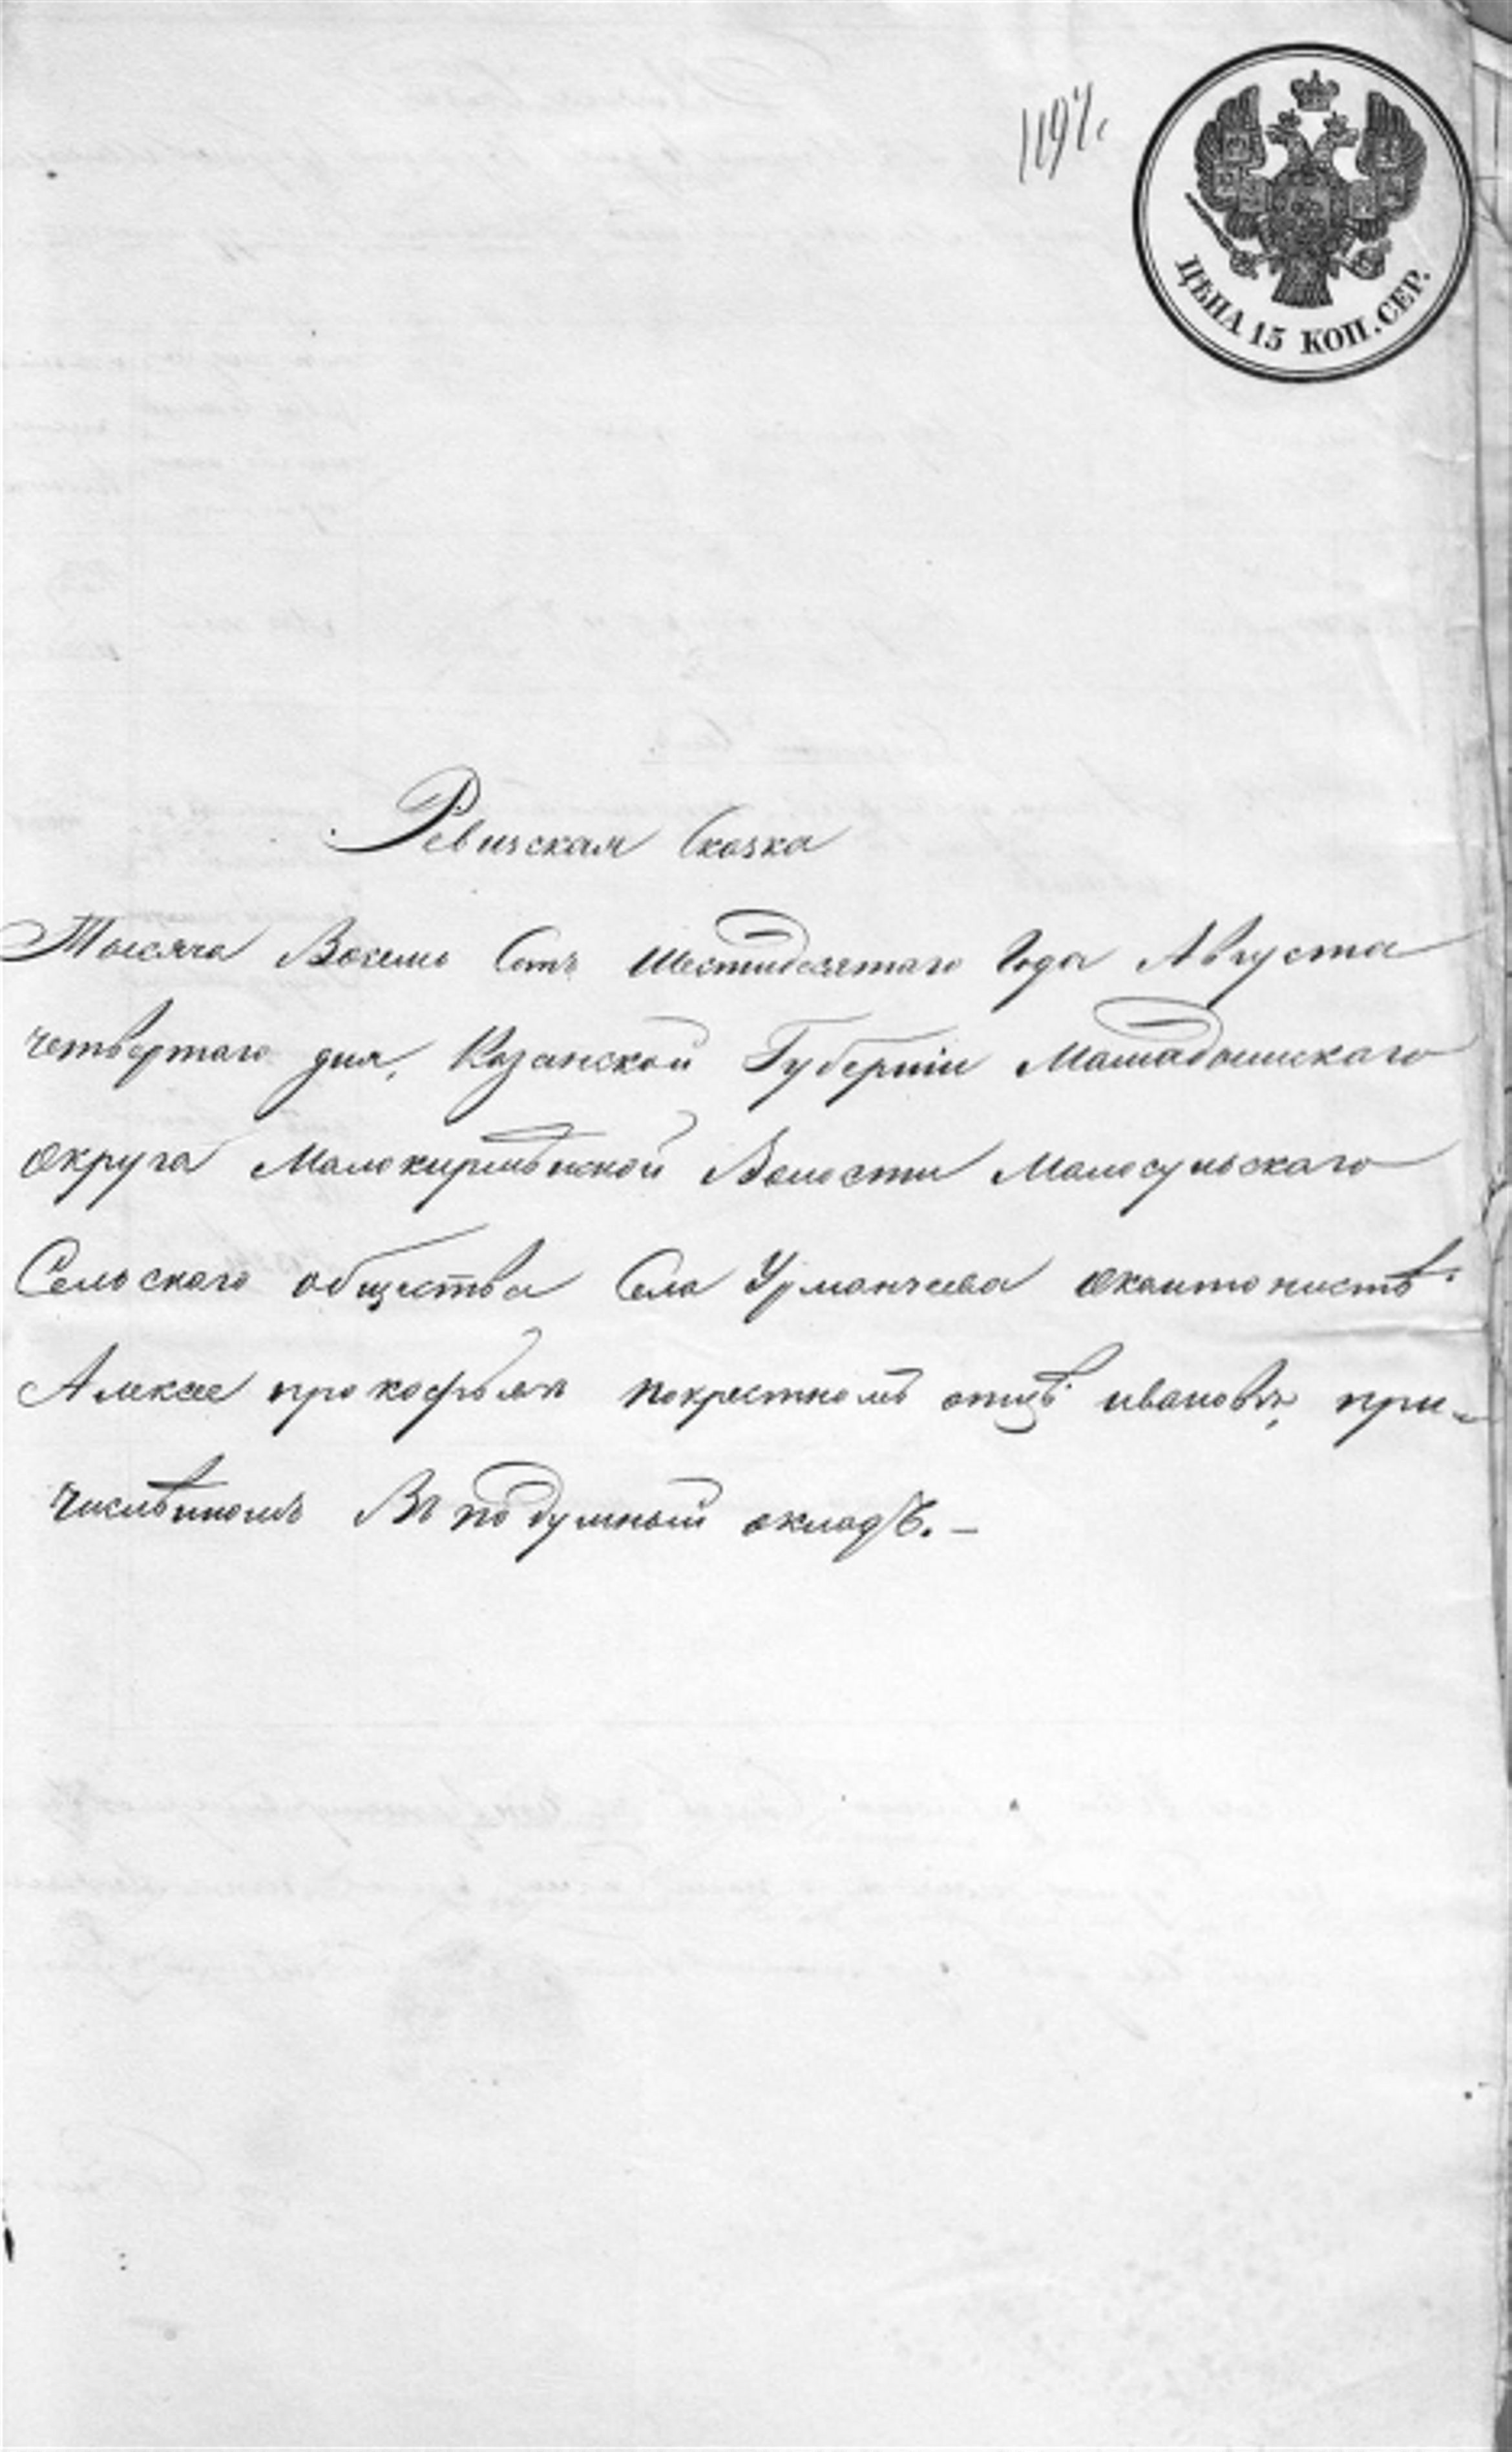 1197.
ЦѢНА 15 КОП. СЕР.
Ревизская Сказка
Тысяча Восемь Сотъ Шестидесятаго Года Августа
четвертаго дня, Казанской Губерніи Мамадышскаго
округа Малокирмѣнской Волости Малосунскаго
Сельскаго общества Села Урманчеева окантонистѣ
Алексее прокофьевъ покрестномъ отцѣ ивановъ, при-
числѣнномъ Въ подушный окладъ. –